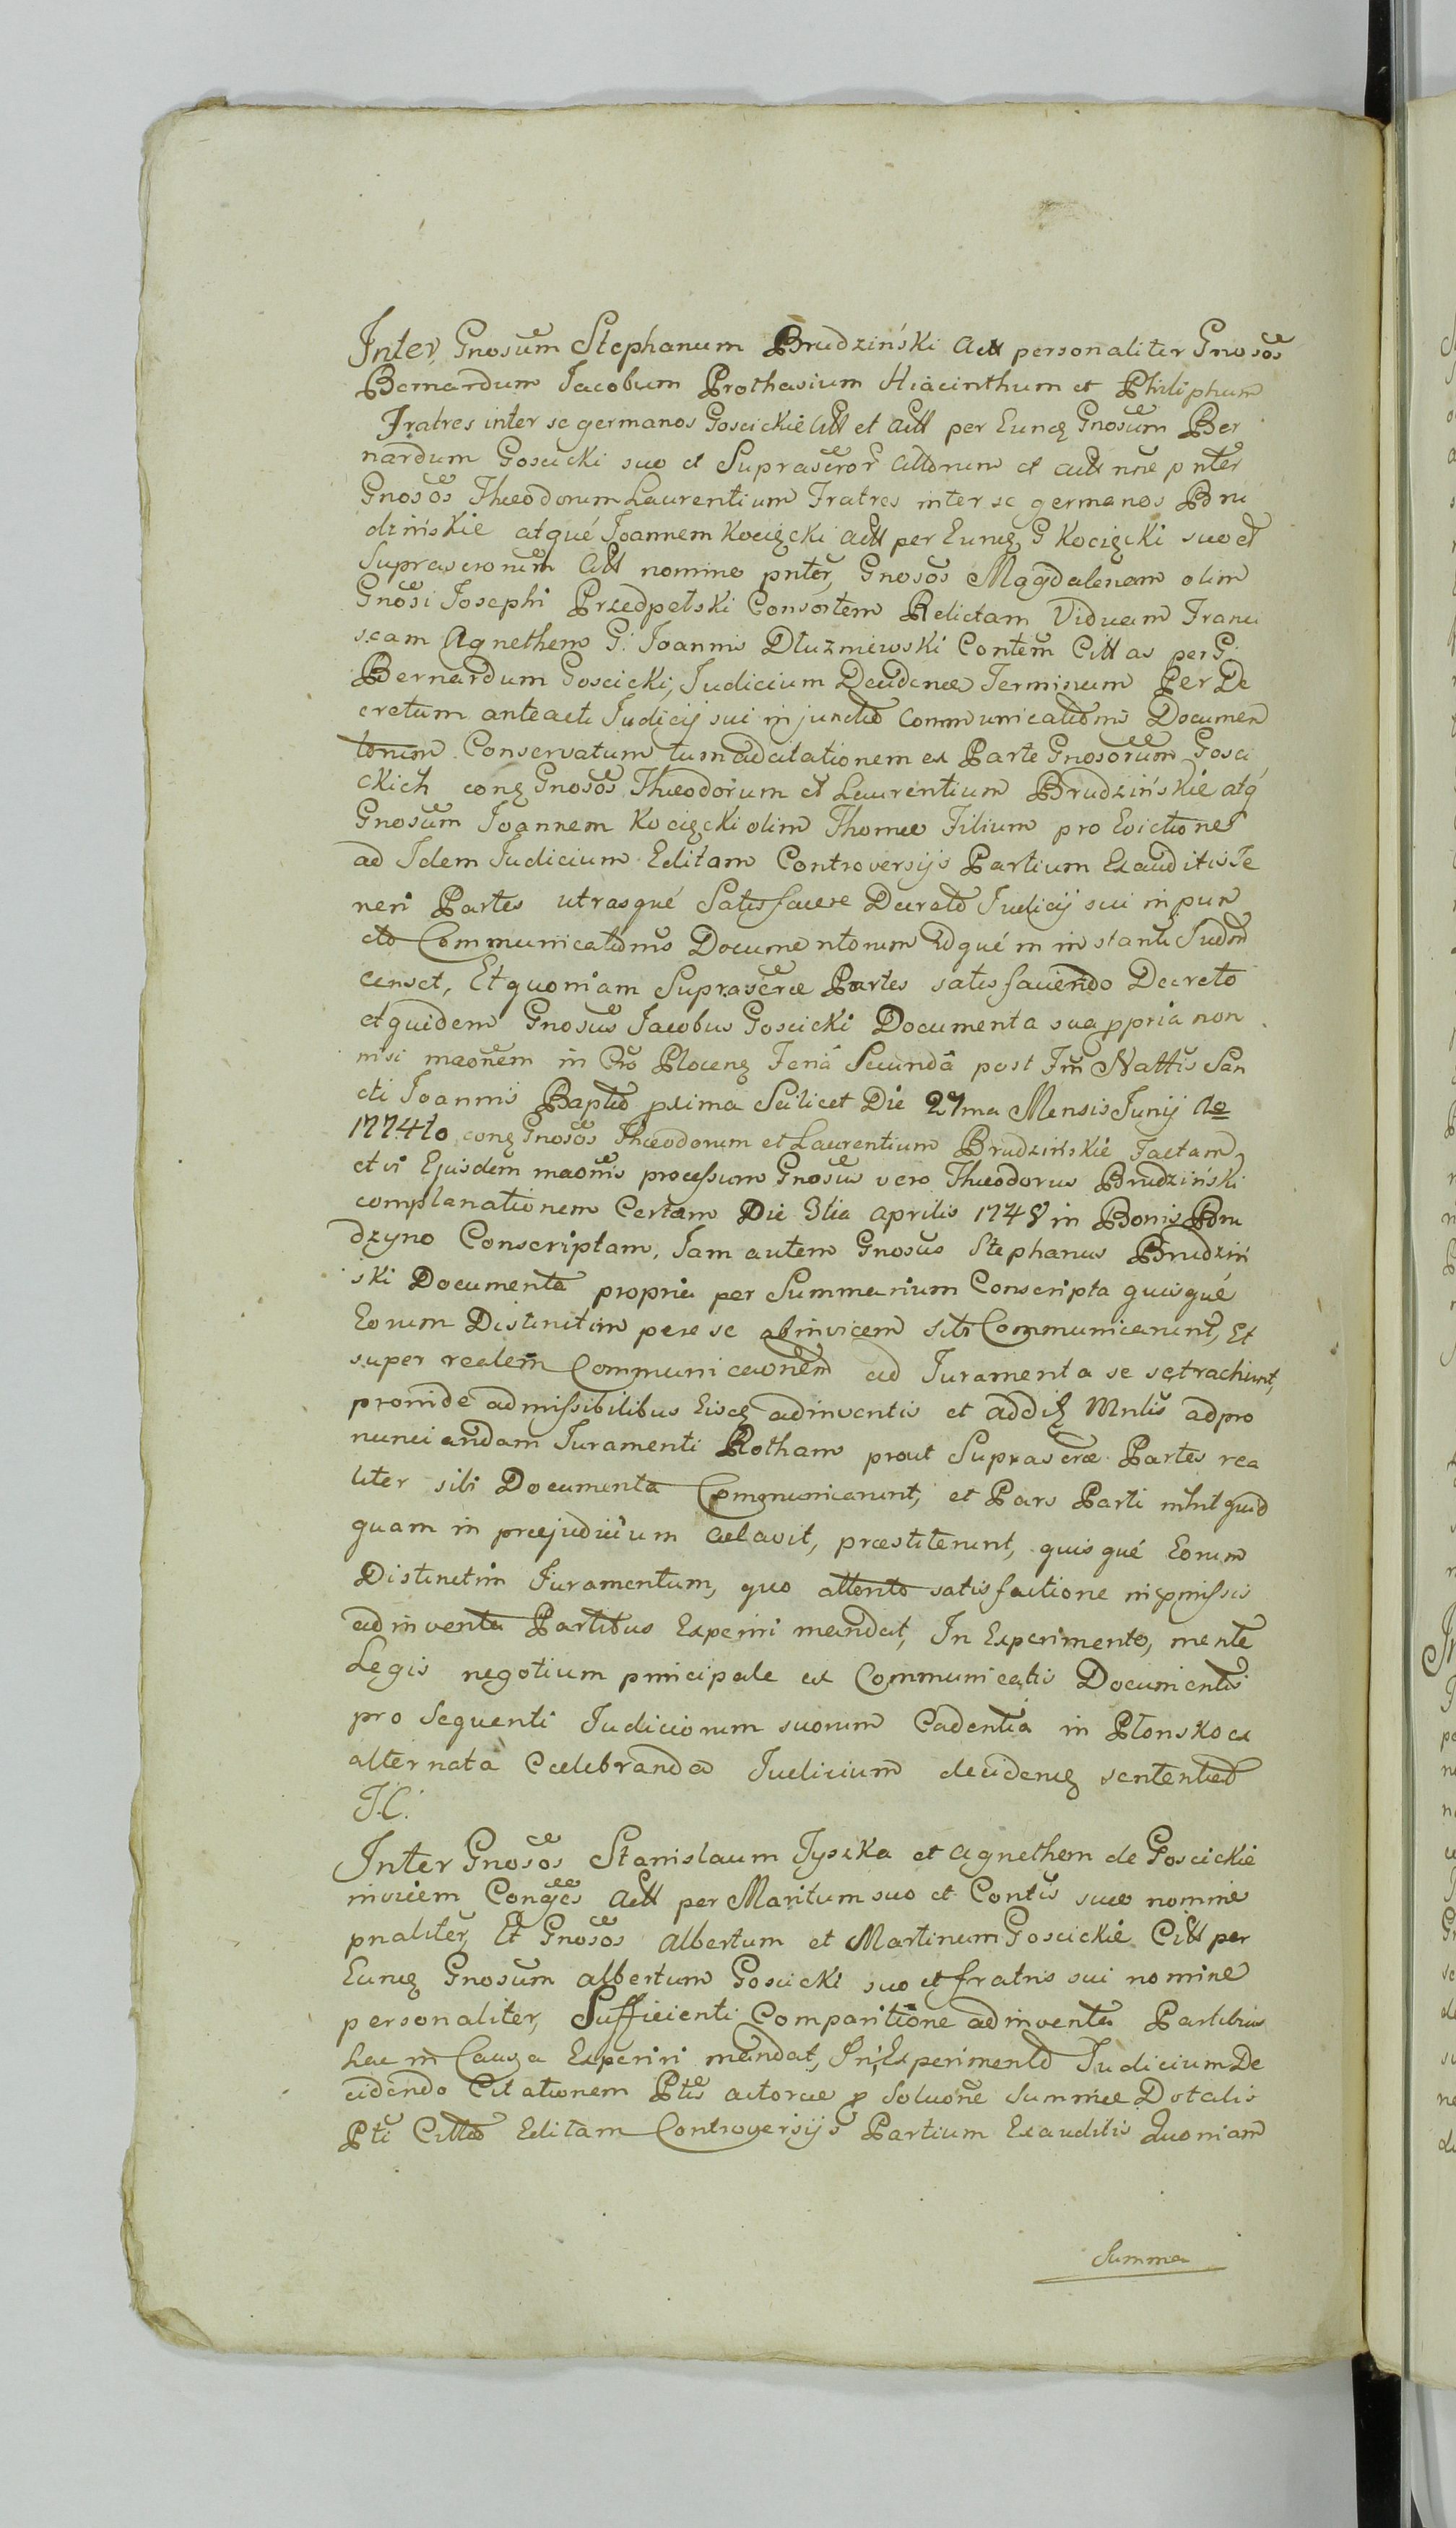 Inter Gnosum Stephanum Brudziński Actt personaliter Gnosos
Bernardum Jacobum Prothasium Hiacinthum et Philiphum
Fratres inter se germanos Goscickie Citt et Actt per Eundę Gnosum Ber
nardum Goscicki suo et Suprascror Cittorum et actt nne pnter
Gnosos Theodorum Laurentium Fratres inter se germanos Bru
dzińskie atqué Joannem Kocięcki actt per Eundę G Kocięcki suo et
Suprascronem Citt nomine pnter, Gnosos Magdalenam olim
Gnosi Josephi Przedpełski Consortem Relictam Viduam Franci
scam Agnethem G. Joannis Dłuzniewski Contem Citt as per G.
Bernardum Goscicki, Judicium Decidendę Terminum Per De
cretum anteacti Judicij sui injuncto Communicationis Documen
torum Conservatum tum adcitationem ex Parte Gnosorum Gosci
ckich cong Gnosos Theodorum et Laurentium Brudzińskie atq
Gnosum Joannem Kocięcki olim Thomæ Filium pro Evictione
ad Idem Judicium Editam Controversijs Partium Exauditis Te
neri Partes utrasqué Satisfacere Decreto Judicij sui in pun
cto Communicationis Documentorum Idqué in instanti Judm
censet, Et quoniam Suprascræ Partes satisfaciendo Decreto
et quidem Gnosus Jacobus Goscicki Documenta sua ppria non
nisi maonem in Cro Plocenę Feriâ Secundâ post Fm Nattis San
cti Joannis Bapto pxima Scilicet Die 27ma Mensis Junij Ao
1774to cong Gnosos Theodorum et Laurentium Brudzińskie Factam
et vi Ejusdem maonis processum Gnosus vero Theodorus Brudziński
complanationem Certam Die 3tia Aprilis 1748 in Bonis Bru
dzyno Conscriptam, Jam autem Gnosus Stephanus Brudziń
ski Documenta propria per Summarium Conscripta quisqué
Eorum Distinctim pere se abinvicem sibi Communicarunt, Et
super realem Communicaonem ad Juramenta se setrachunt,
proinde admissibilibus Eisdę adinventis et addię Mnlis adpro
nunciandam Juramenti Rotham prout Suprascræ Partes rea
liter sibi Documenta Communicarunt, et Pars Parti nihil quid
quam in præjudicium celavit, præstiterunt, quisqué Eorum
Distinctim Juramentum, quo attento satisfactione in pmissis
adinventa Partibus Experiri mandat, In Experimento, mente
Legis negotium principale ex Communicatis Documentis
pro Sequenti Judiciorum suorum Cadentia in Płonsko ex
alternatà Celebranda Judicium decidendę sententiet
J.C.
Inter Gnosos Stanislaum Tyszka et Agnethem de Goscickie
invicem Conges Actt per Maritum suo et Contis suæ nomine
pnaliter, Et Gnosos Albertum et Martinum Goscickie Citt per
Eundę Gnosum Albertum Goscicki suo et fratris sui nomine
personaliter, Sufficienti Comparitione adinventa Partibus
hac in Causa Experiri mandat, In Experimento Judicium De
cidendo Citationem Ptis actoræ p Soluone Summæ Dotalis
Pti Citto Editam Controversijs Partium Exauditis Quoniam
Summa